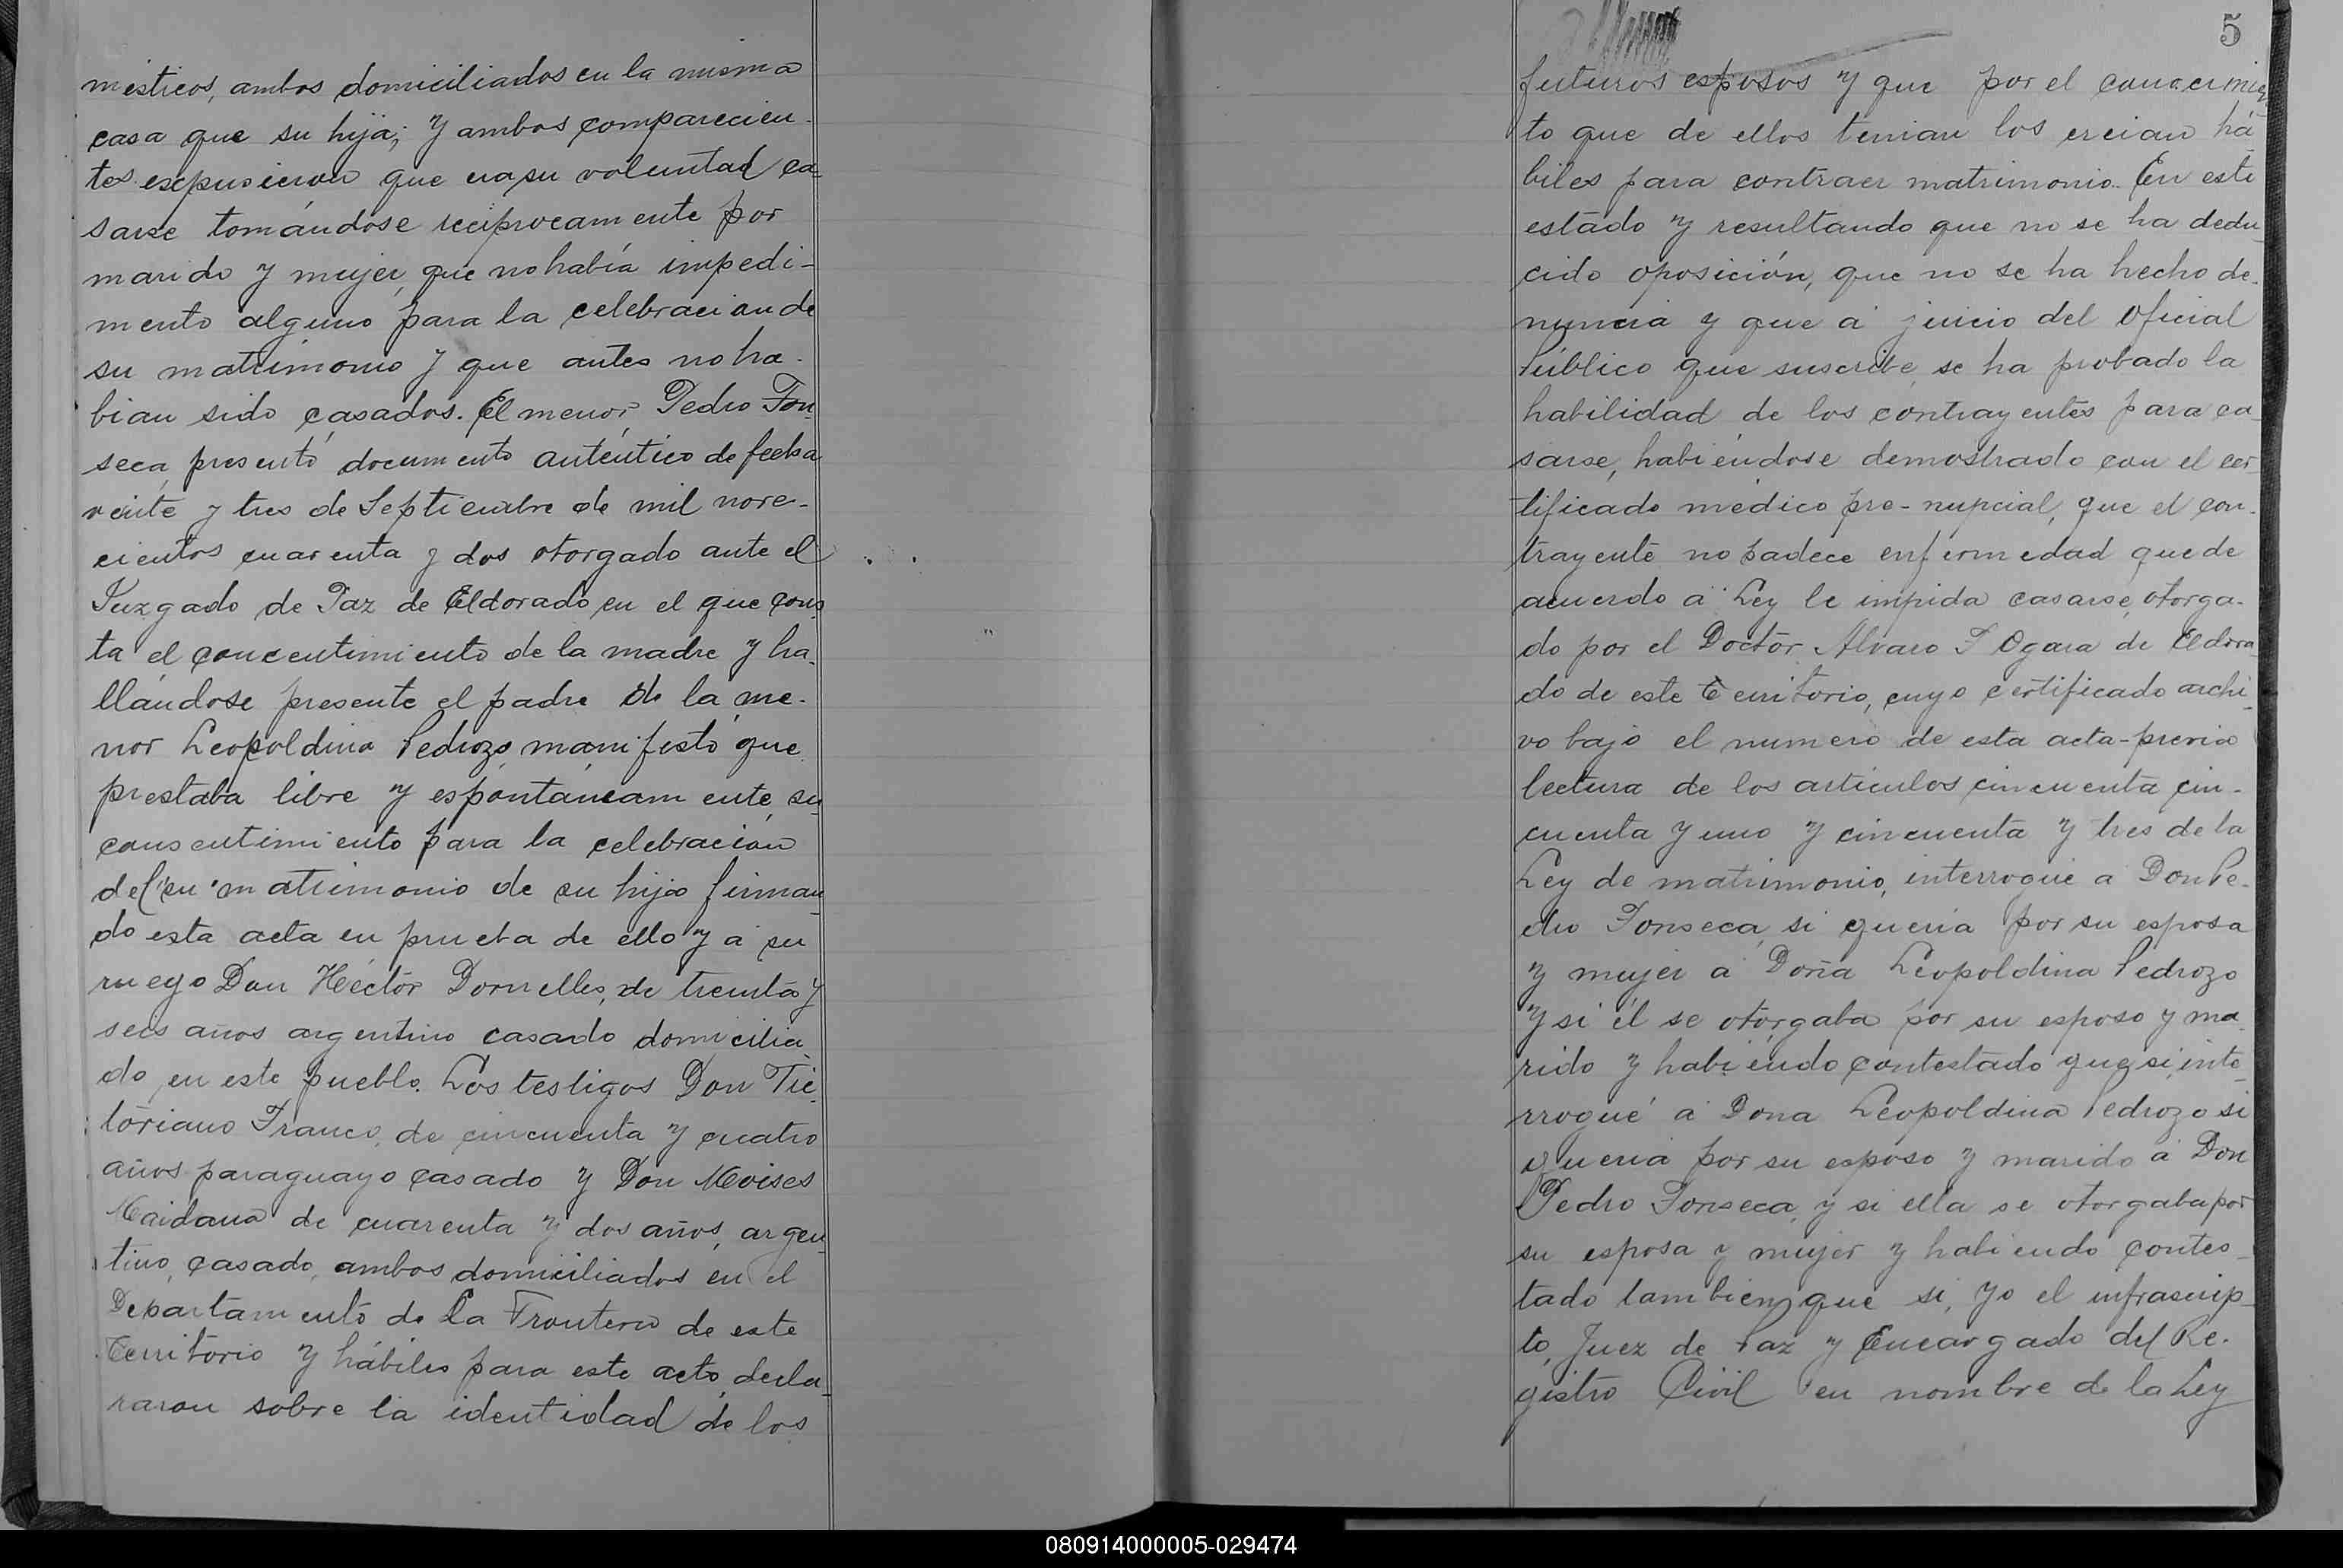 mésticos, ambos domiciliados en la misma
casa que su hija; y ambos comparecien-
tes expusieron que era su voluntad ca-
sarse tomándose reciprocamente por
marido y mujer, que no había impedi-
mento alguno para la celebracion de
su matrimonio y que antes no ha-
bian sido casados. El menor, Pedro Fon-
seca, presentó documento auténtico de fecha
veinte y tres de Septiembre de mil nove-
cientos cuarenta y dos otorgado ante el
Juzgado de Paz de Eldorado, en el que cons
ta el concentimiento de la madre y ha-
llándose presente el padre de la me-
nor Leopoldina Pedrozo, manifestó que
prestaba libre y espontáneamente, su
consentimiento para la celebración
del "su" matrimonio de su hija firman-
do esta acta en prueba de ello y a su
ruego Don Héctor Dornelles, de treinta y
seis años argentino casado domicilia-
do en este pueblo. Los testigos Don Vic-
toriano Franco, de cincuenta y cuatro
años paraguayo casado y Don Moises
Maidana de cuarenta y dos años, argen-
tino, casado, ambos domiciliados en el
Departamento de La Frontera de este
Territorio y hábiles para este acto, decla-
raron sobre la identidad de los
5
futuros esposos y que por el conocimien
to que de ellos tenian los creian há
biles para contraer matrimonio. En este
estado y resultando que no se ha dedu-
cido oposición, que no se ha hecho de-
nuncia y que a juicio del Oficial
Público que suscribe, se ha probado la
habilidad de los contrayentes para ca-
sarse, habiéndose demostrado con el cer-
tificado médico pre-nupcial, que el con-
trayente no padece enfermedad que de
acuerdo a Ley le impida casarse, otorga-
do por el Doctor Alvaro F Ogara de Eldora-
do de este Territorio, cuyo certificado archi-
vo bajo el numero de esta acta-previa
lectura de los articulos cincuenta cin-
cuenta y uno y cincuenta y tres de la
Ley de matrimonio, interrogué a Don Pe-
dro Fonseca, si queria por su esposa
y mujer a Doña Leopoldina Pedrozo
y si él se otorgaba por su esposo y ma-
rido y habiendo contestado que si, inte-
rrogué a Dona Leopoldina Pedrozo si
queria por su esposo y marido a Don
Pedro Fonseca, y si ella se otorgaba por
su esposa y mujer y habiendo contes-
tado tambien que si, yo el infrascrip-
to, Juez de Paz y Encargado del Re-
gistro Civil en nombre de la Ley
080914000005-029474